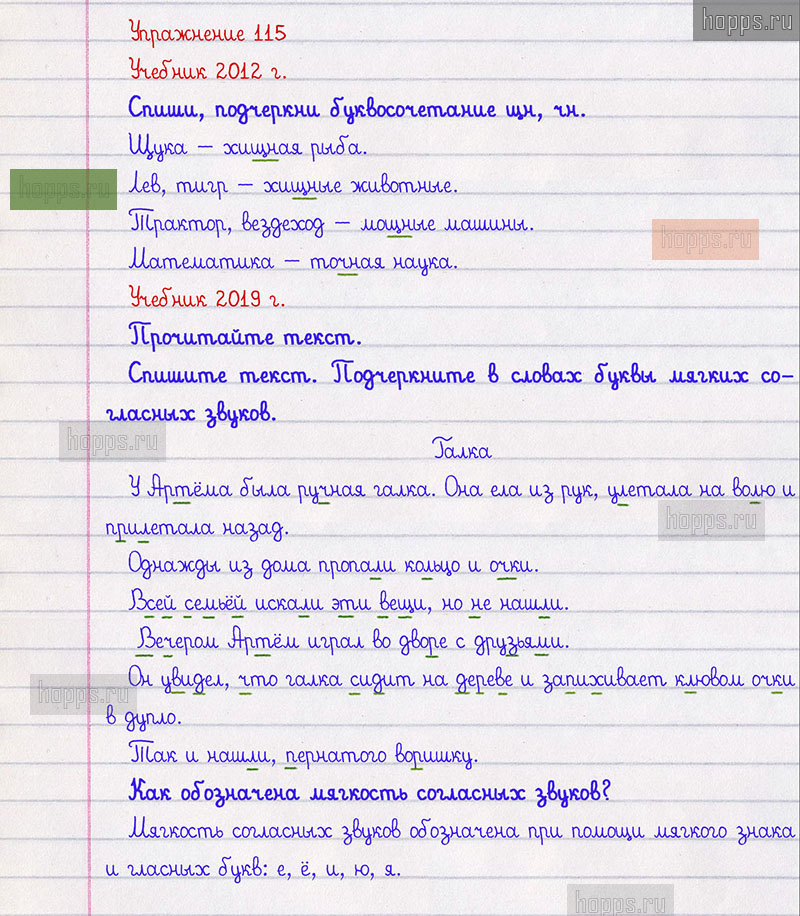 hopps.ru
Упражнение 115
Учебник 2012 г.
Спиши, подчеркни буквосочетание щн, чн.
Щука – хищная рыба.
hopps.ru
Лев, тигр – хищные животные.
Трактор, вездеход – мощные машины.
hopps.ru
Математика – точная наука.
Учебник 2019 г.
Прочитайте текст.
Спишите текст. Подчеркните в словах буквы мягких со-
гласных звуков.
hopps.ru
Галка
У Артёма была ручная галка. Она ела из рук, улетала на волю и
hopps.ru
прилетала назад.
Однажды из дома пропали кольцо и очки.
Всей семьёй искали эти вещи, но не нашли.
Вечером Артём играл во дворе с друзьями.
Он увидел, что галка сидит на дереве и запихивает клювом очки
hopps.ru
в дупло.
Так и нашли, пернатого воришку.
Как обозначена мягкость согласных звуков?
Мягкость согласных звуков обозначена при помощи мягкого знака
и гласных букв: е, ё, и, ю, я.
hopps.ru